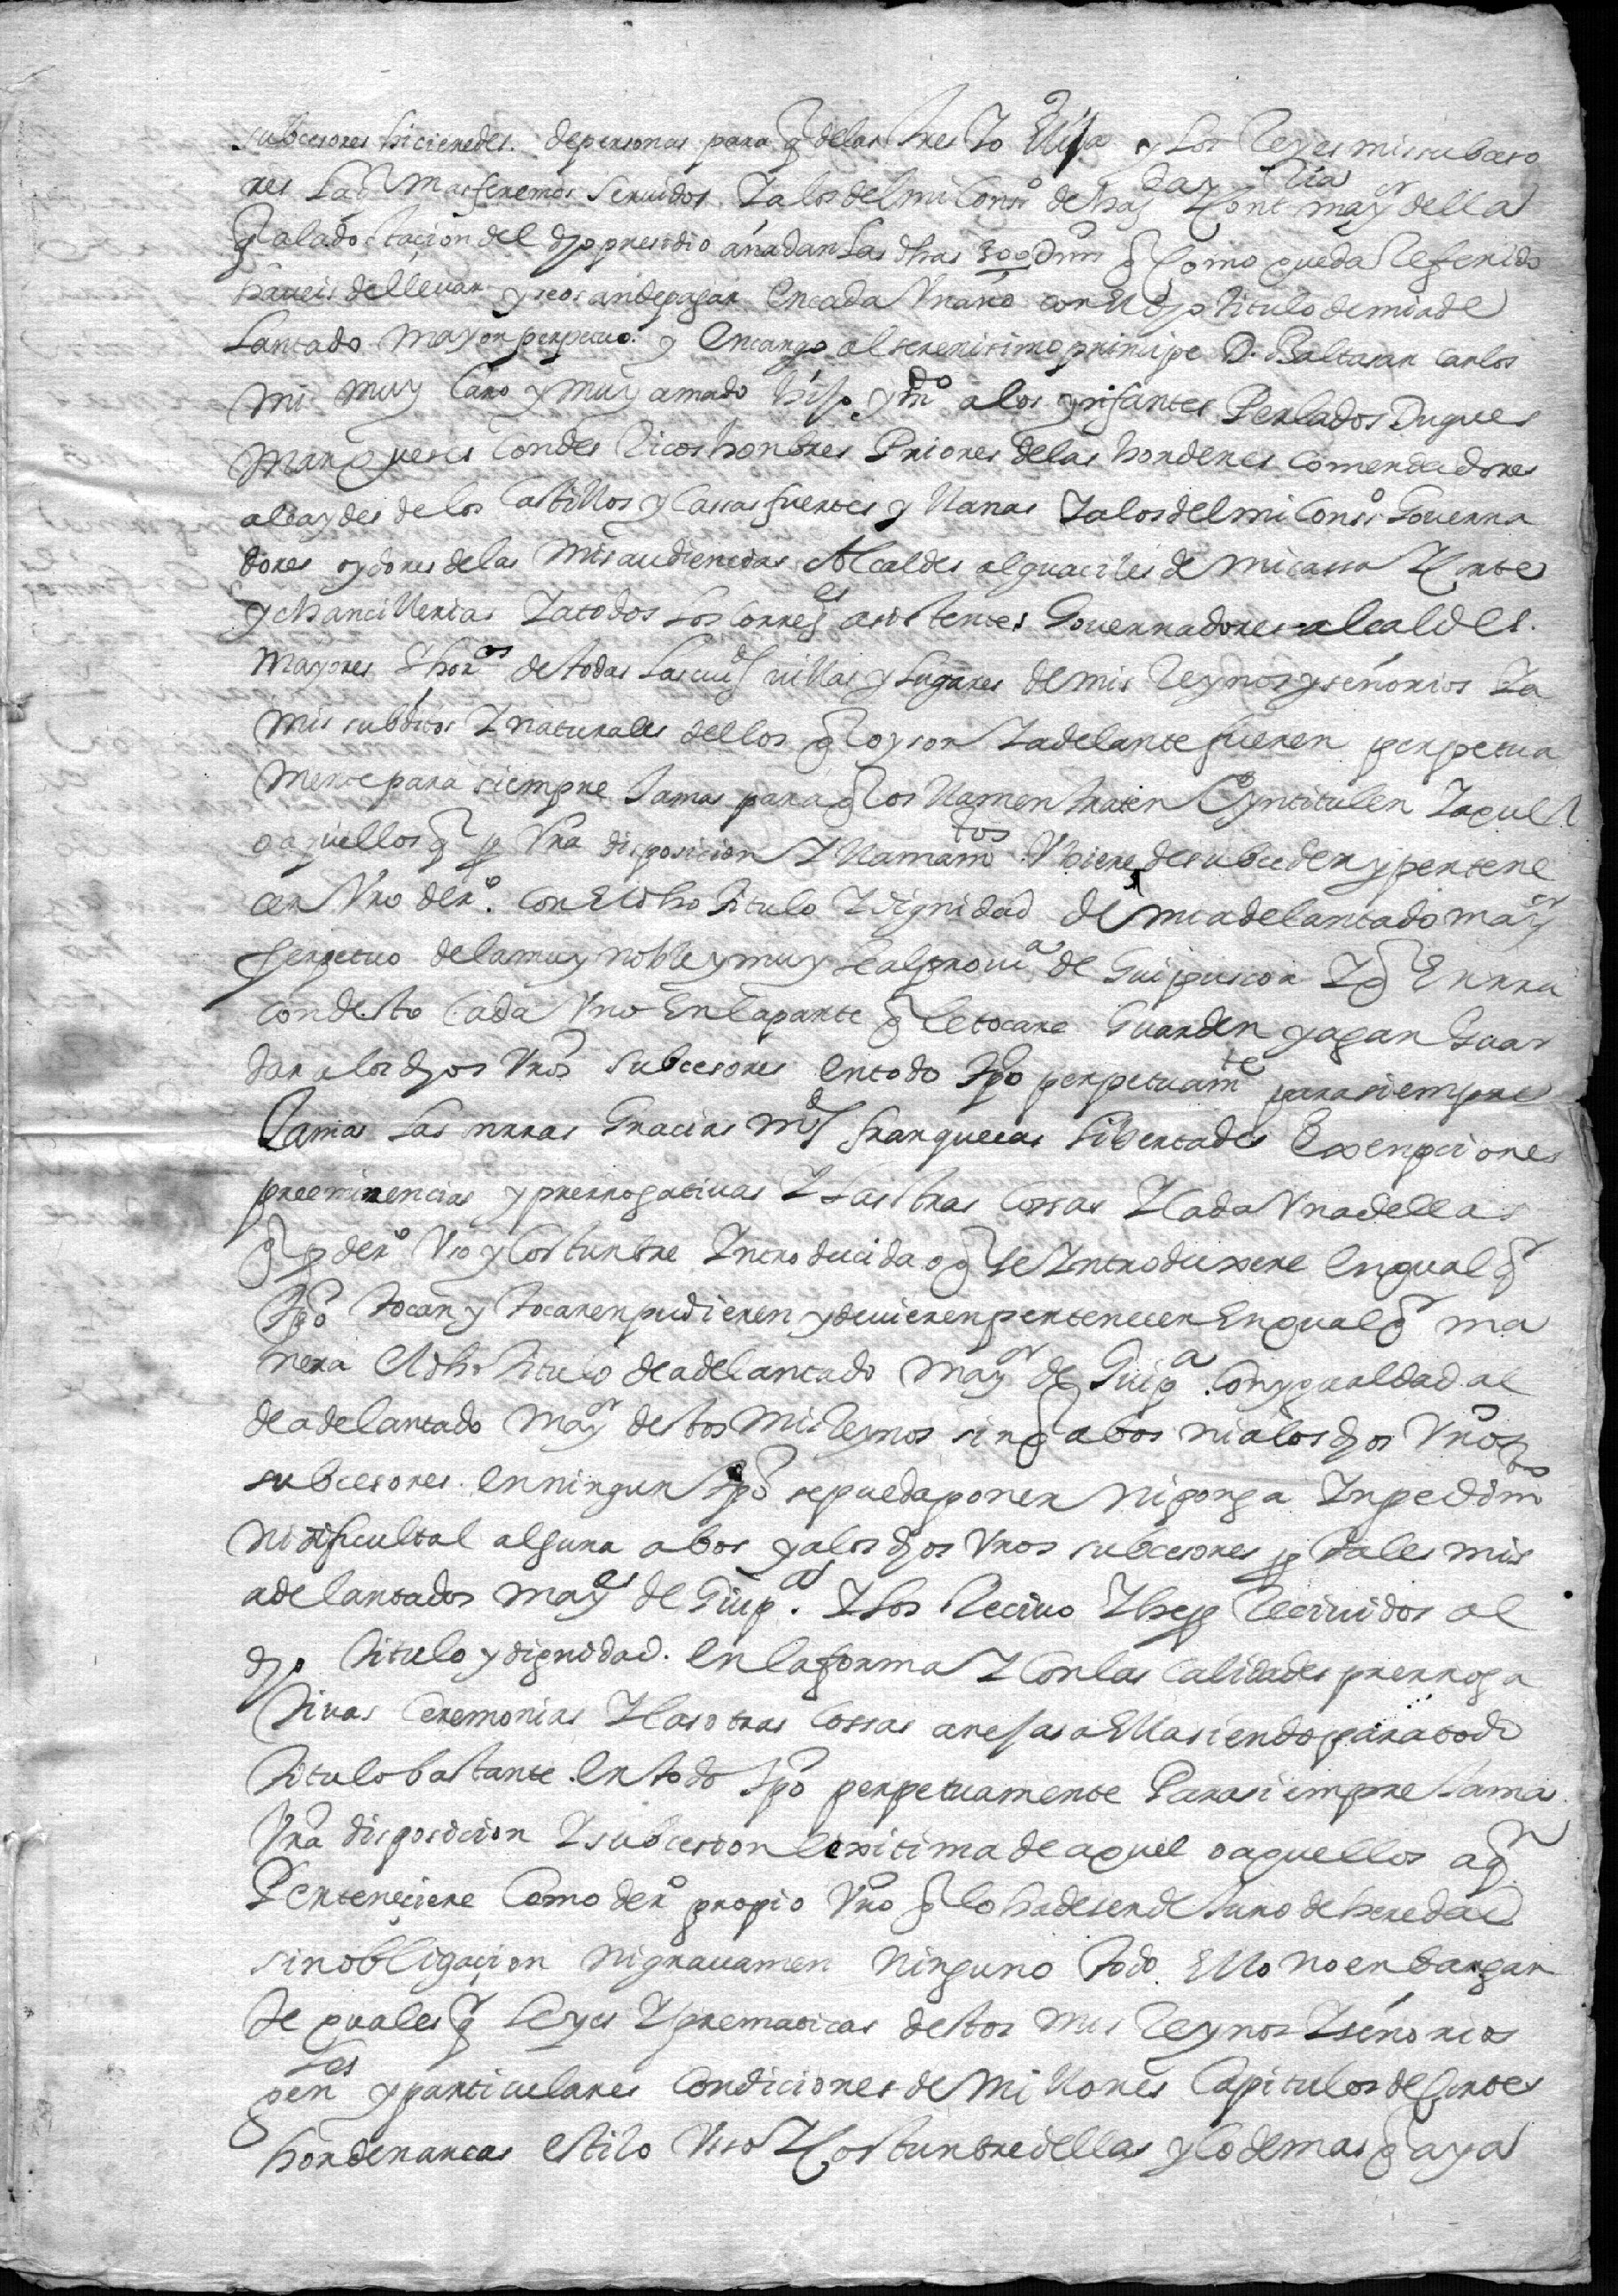 subcesores hicieredes. de personas para q de las tres Yo Elija o los Reyes mis subceso
res la q mas seremos servidos Y a los del mi Consº de haz.da Y Cont.ria may.or della
q a la dotacion del dho presidio añadan las dhas 300 d q Como queda Referido
haveis de llevar y se os an de pagar en cada Un año con el dho titulo de mi ade
lantado mayor perpetuo. y encargo al serenisimo principe D. Baltasar Carlos
mi muy Caro y muy amado hijo y m.do a los ynfantes Perlados Duques
Marqueses Condes Ricoshonbres Priores de las hordenes Comendadores
alcaydes de los Castillos y Casas fuertes y llanas Y a los del mi Consº Governa
dores oydores de las mis audiencias Alcaldes alguaciles de mi cassa Y Corte
y chancillerias Y a todos los Correg.es asistentes Governadores alcaldes
mayores Y hor.os de todas las ciud.s villas y lugares de mis Reynos y señorios Y a
mis subditos Y naturales dellos q oy son Y adelante fueren perpetua
mente para siempre Jamas para q os llamen traten E yntitulen Y aquel
o aquellos q p Vra disposicion Y llamam.tos Ubiere de subceder y pertene
cer Vro derº. Con El dho titulo Y dignidad de mi adelantado may.or
perpetuo de la muy noble y muy leal provi.a de Guipuscoa Y q
con desto Cada Uno En la parte q le tocare Guarden y agan Guar
dar a los dhos Vros subcesores en todo tpo perpetuam.te para siempre
Jamas las onrras Gracias m.ds franquecas libertades Exenpciones
preeminencias y prerrogativas Y las otras Cossas Y Cada Una dellas
q p derº Uso y Costunbre Introducida o q se Introduxere en qual q
tpo tocan y tocaren pudieren y devieren pertenecer En qual q ma
nera Al dho titulo de adelantado may.or de Guip.a Con ygualdad al
de adelantado may.or destos mis Reynos sin q a bos ni a los dhos Vros
subcesores. en ningun tpo se pueda poner ni ponga Inpedim.to
ni dificultal alguna a bos y a los dhos Vros subcesores p tales mis
adelantados may.es de Guip.a. Y los Recivo Y he p Recividos al
dho titulo y dignidad. en la forma Y Con las Calidades prerroga
tivas Ceremonias Y las otras Cossas anejas a Ella siendo para todo
titulo bastante en todo tpo perpetuamente Para siempre Jamas
Vra disposicion Y subcesion lexitima de aquel o aquellos a q
Perteneciere Como derº propio Vro q lo ha de ser de Juro de heredad
sin obligacion ni gravamen ninguno todo Ello no enbargan
te quales q leyes Y prematicas destos mis Reynos Y señorios
gen.les y particulares Condiciones de Millones Capitulos de Cortes
hordenancas estilo Uso Y Costunbre dellas y lo demas q aya